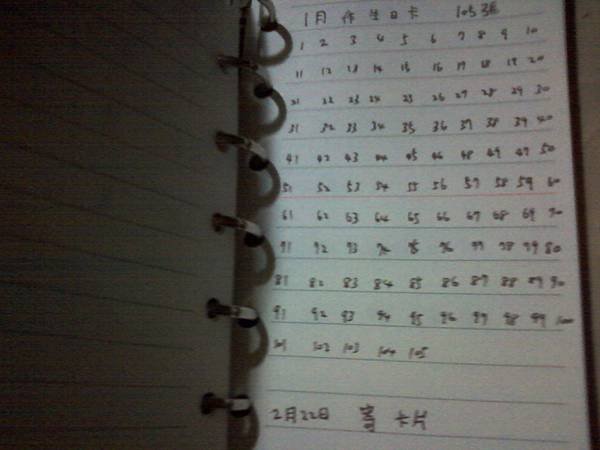 1月作生日卡 105張
1 2 3 4 5 6 7 8 9 10
11 12 13 14 15 16 17 18 19 20
21 22 23 24 25 26 27 28 29 30
31 32 33 34 35 36 37 38 39 40
41 42 43 44 45 46 48 49 47 50
51 52 53 54 55 56 57 58 59 60
61 62 63 64 65 66 67 68 69 70
71 72 73 74 75 76 77 78 79 80
81 82 83 84 85 86 87 88 89 90
91 92 93 94 95 96 97 98 99 100
101 102 103 104 105
2月22日 寄 卡片